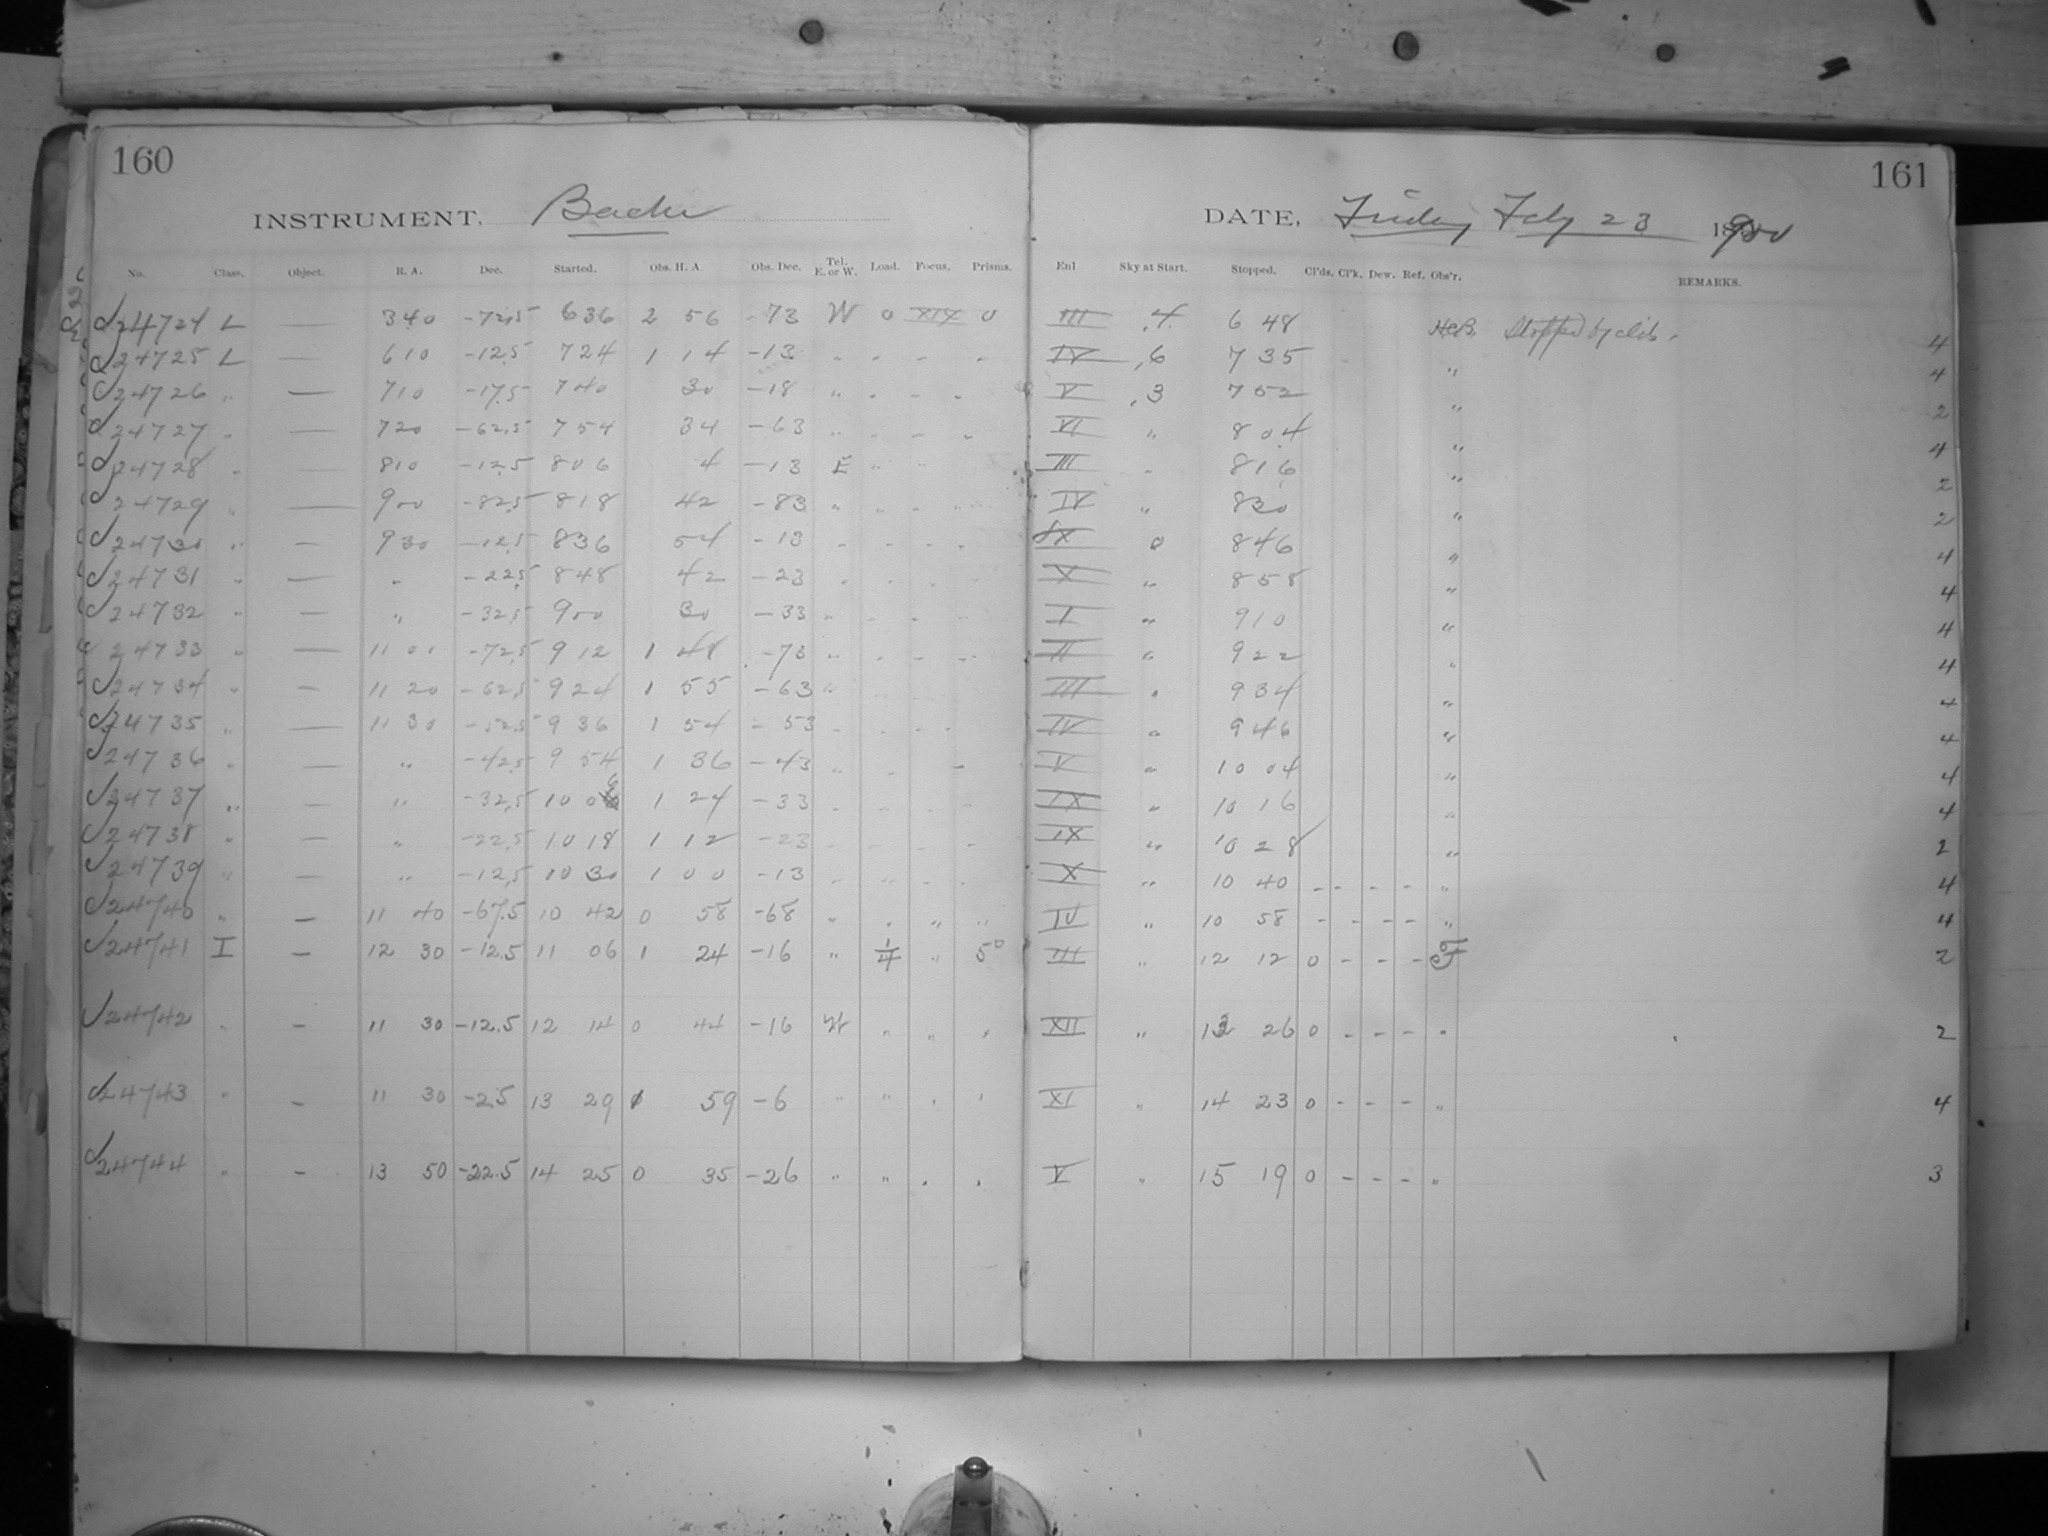 160
INSTRUMENT, Bache
No. Class. Object. R. A. Dec. Started. Obs. H. A. Obs. Dec. Tel. E. or W. Load. Focus. Prisms.
24724 L — 3 40 -72.5 6 36 2 56 -73 W 0 XIX 0
24725 L — 6 10 -12.5 7 24 1 14 -13 " " " "
24726 " — 7 10 -17.5 7 40 30 -18 " " " "
24727 " — 7 20 -62.5 7 54 34 -63 " " " "
24728 " — 8 10 -12.5 8 06 4 -13 E " "
24729 " — 9 00 -82.5 8 18 42 -83 " " " "
24730 " — 9 30 -12.5 8 36 54 -13 " " " "
24731 " — " -22.5 8 48 42 -23 " " " "
24732 " — " -32.5 9 00 30 -33 " " " "
24733 " — 11 01 -72.5 9 12 1 48 -73 " " " "
24734 " — 11 20 -62.5 9 24 1 55 -63 "
24735 " — 11 30 -52.5 9 36 1 54 -53 " " " "
24736 " — " -42.5 9 54 1 36 -43 " " "
24737 " — " -32.5 10 06 1 24 -33 " " " "
24738 " — " -22.5 10 18 1 12 -23 " " " "
24739 " — " -12.5 10 30 1 00 -13 " " " "
24740 " — 11 40 -67.5 10 42 0 58 -68 " " " "
24741 I — 12 30 -12.5 11 06 1 24 -16 " 1/4 " 5°
24742 " — 11 30 -12.5 12 14 0 44 -16 W " " "
24743 " — 11 30 -2.5 13 29 59 -6 " " " "
24744 " — 13 50 -22.5 14 25 0 35 -26 " " " "
161
DATE, Friday Feby 23 1900
Enl Sky at Start. Stopped. Cl'ds. Cl'k. Dew. Ref. Obs'r. REMARKS.
III .4 6 48 HCB. Stopped by clds. 4
IV .6 7 35 " 4
V .3 7 52 " 2
VI " 8 04 " 4
III " 8 16 " 2
IV " 8 30 " 2
IX 0 8 46 " 4
X " 8 58 " 4
I " 9 10 " 4
II " 9 22 " 4
III " 9 34 " 4
IV " 9 46 " 4
V " 10 04 " 4
IX " 10 16 " 4
IX " 10 28 " 2
X " 10 40 - - - - " 4
IV " 10 58 - - - - " 4
III " 12 12 0 - - - F 2
XII " 13 26 0 - - - " 2
XI " 14 23 0 - - - " 4
V " 15 19 0 - - - " 3